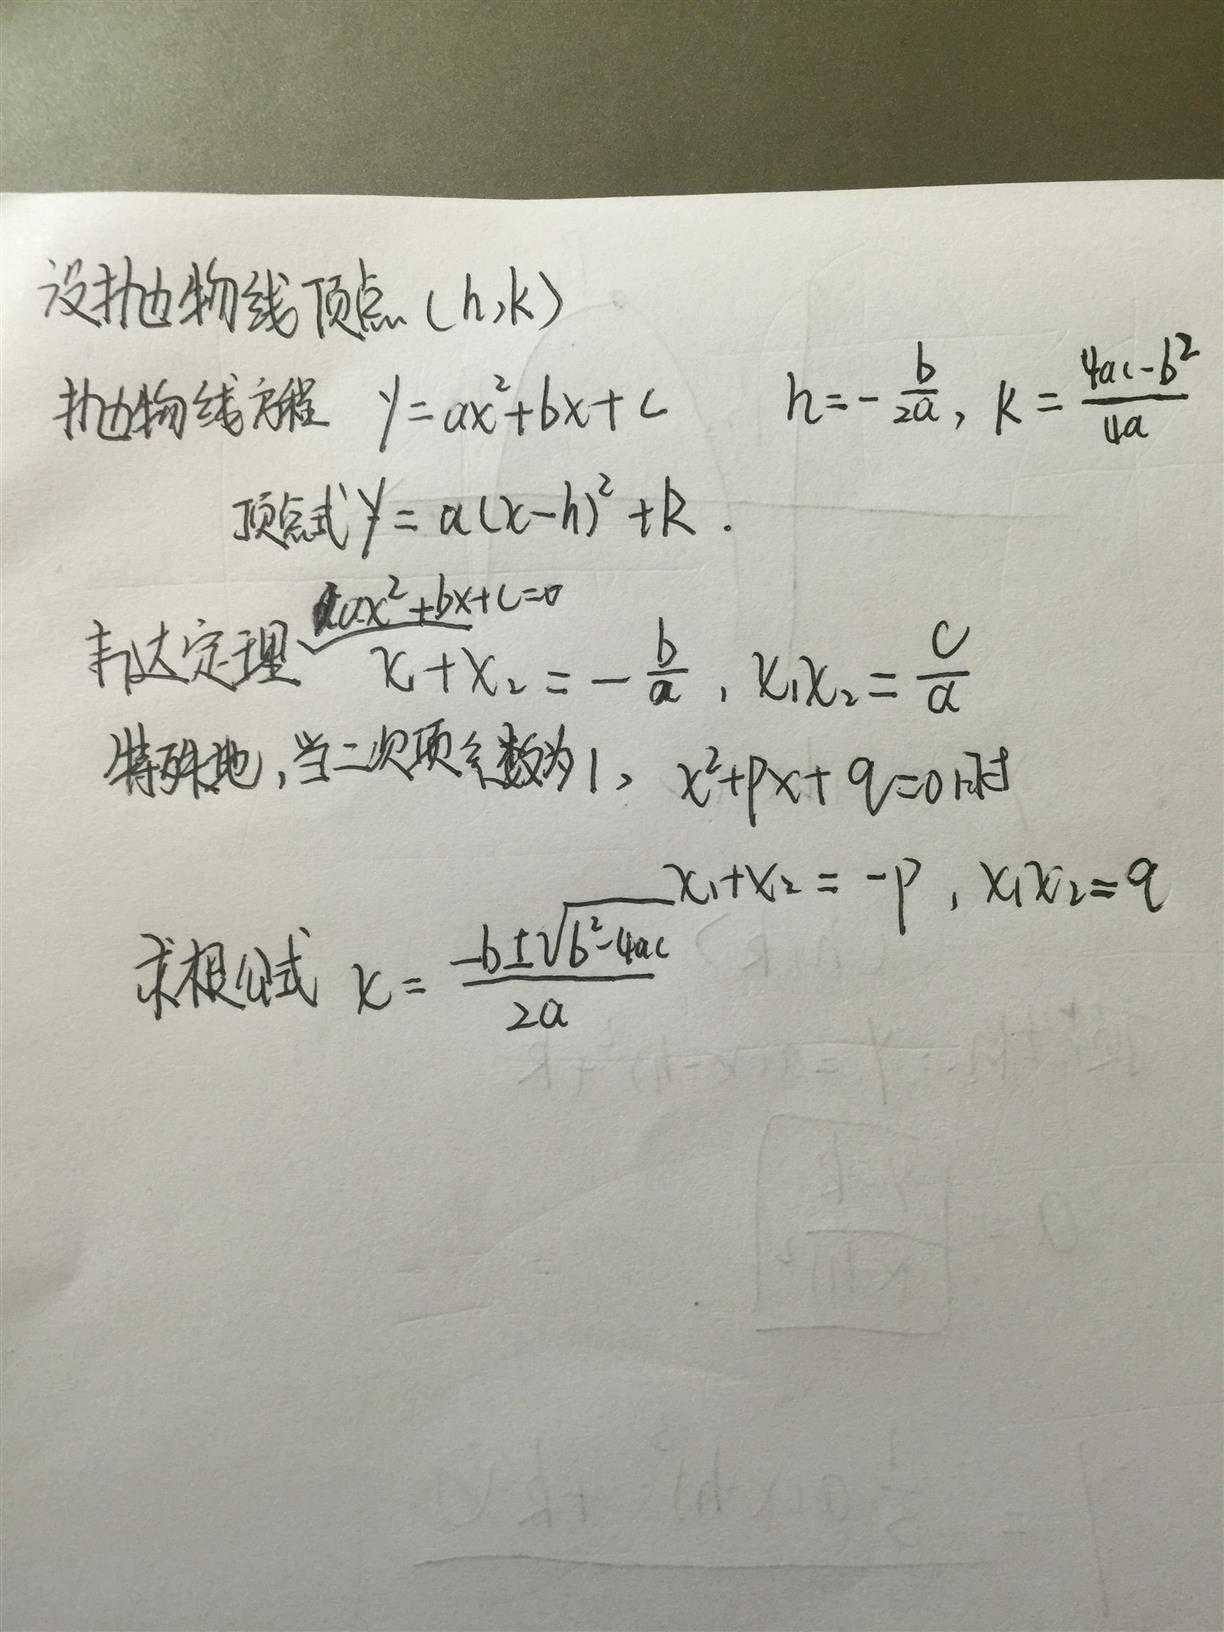 设抛物线顶点(h,k)
抛物线方程 y=ax²+bx+c h=-b/2a, k=(4ac-b²)/4a
顶点式y=a(x-h)²+k.
ax²+bx+c=0
韦达定理 x₁+x₂=-b/a, x₁x₂=c/a
特殊地,当二次项系数为1, x²+px+q=0时
x₁+x₂=-p, x₁x₂=q
求根公式 x=(-b±√(b²-4ac))/2a